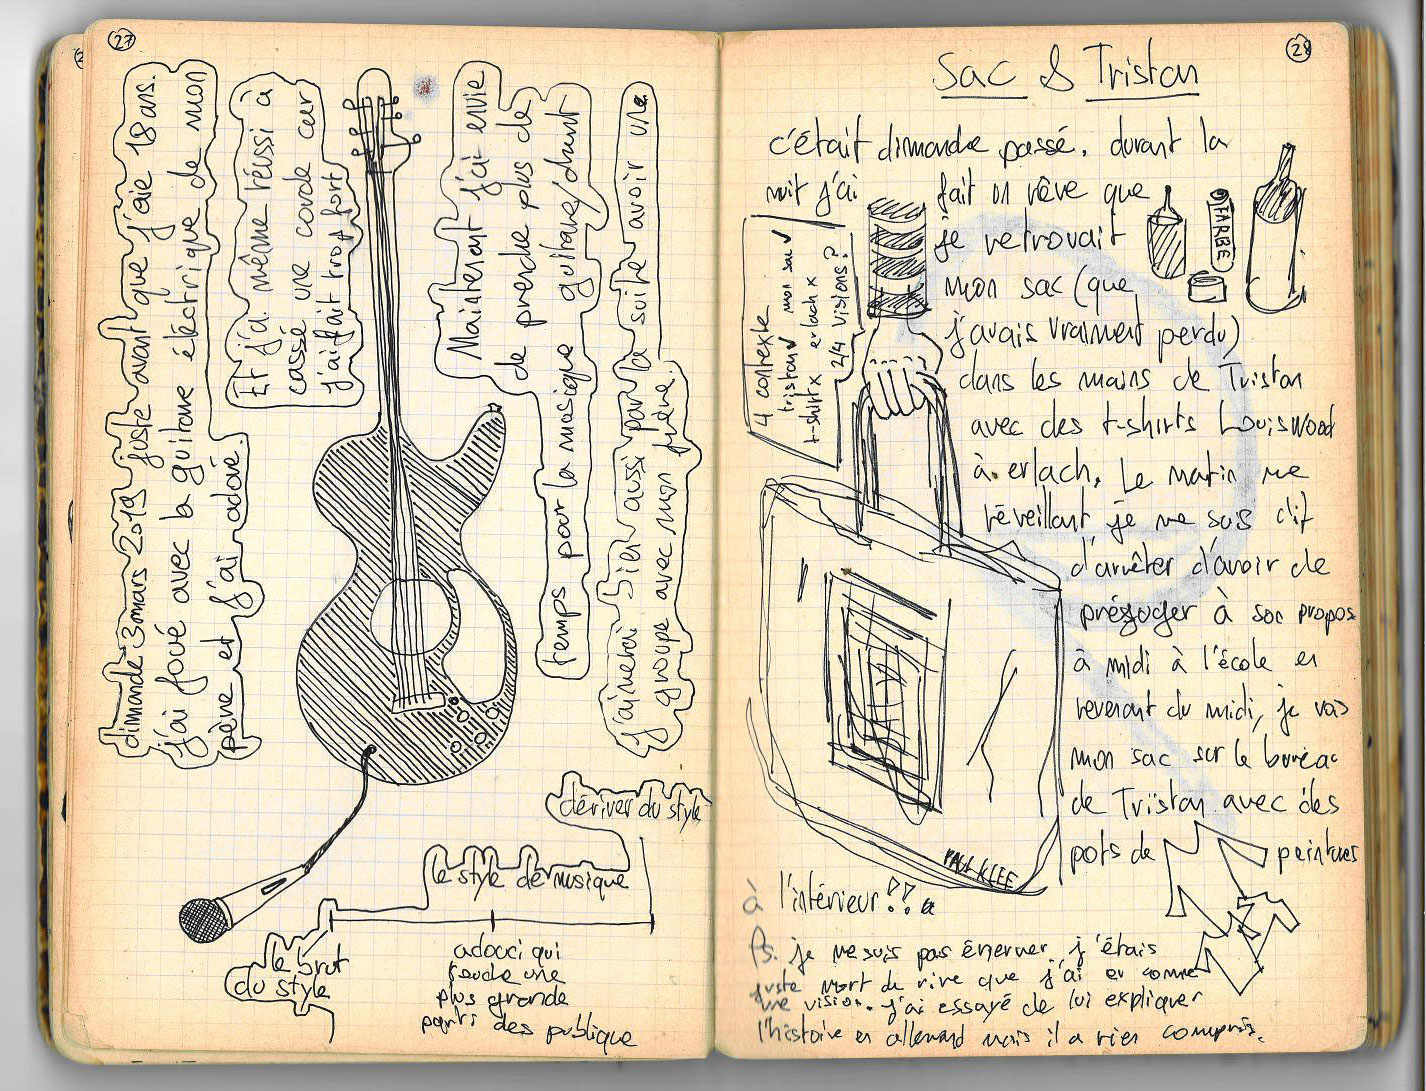 27
dimande 3 mars 2019 juste avant que j'aie 18 ans.
j'ai joué avec la guitare électrique de mon
père et j'ai adoré.
Et j'ai même réussi à
cassé une corde car
j'ai fait trop fort
Maintenant j'ai envie
de prendre plus de
guitare/chant
temps pour la musique
j'aimerai bien aussi par la suite avoir une
groupe avec mon frère.
dériver du style
le style de musique
le brut
du style
adouci qui
touche une
plus grande
parti des publique
28
Sac & Tristan
c'était dimande passé. durant la
nuit j'ai fait un rêve que
je retrouvait
mon sac (que
j'avais vraiment perdu)
dans les mains de Tristan
avec des t-shirts Louiswood
à erlach. Le matin me
réveillant je me suis dit
d'arrêter d'avoir de
préjuger à son propos
à midi à l'école en
revenant du midi, je vois
mon sac sur le bureau
de Tristan avec des
pots de peintures
à l'intérieur!?!
FARBE
4 contexte
tristan ✓ mon sac ✓
t-shirt x erlach x
2/4 visions?
PAUL KLEE
Ps. je me suis pas énerver, j'étais
juste mort de rire que j'ai eu comme
une vision. j'ai essayé de lui expliquer
l'histoire en allemand mais il a rien compris.